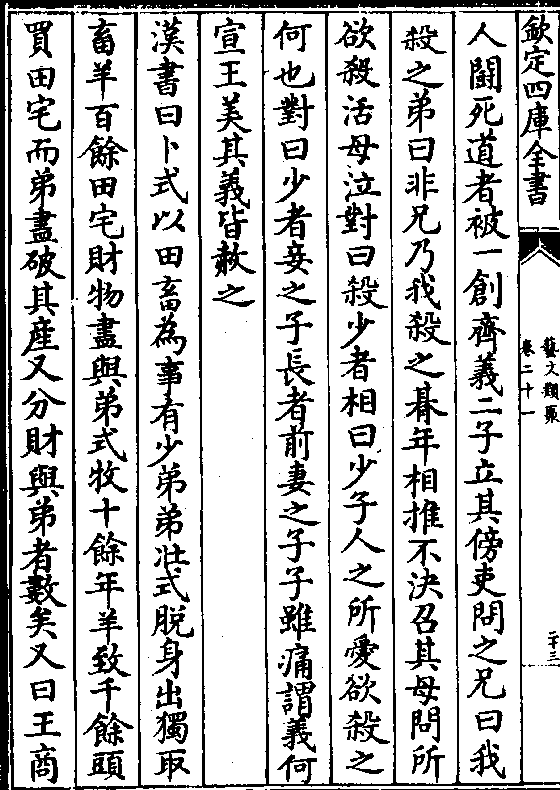 欽定四庫全書
藝文類聚
卷二十一
二十三
人鬬死道者被一創齊義二子立其傍吏問之兄曰我
殺之弟曰非兄乃我殺之朞年相推不決召其母問所
欲殺活母泣對曰殺少者相曰少子人之所愛欲殺之
何也對曰少者妾之子長者前妻之子子雖痛謂義何
宣王美其義皆赦之
漢書曰卜式以田畜為事有少弟弟壯式脫身出獨取
畜羊百餘田宅財物盡與弟式牧十餘年羊致千餘頭
買田宅而弟盡破其產又分財與弟者數矣又曰王商